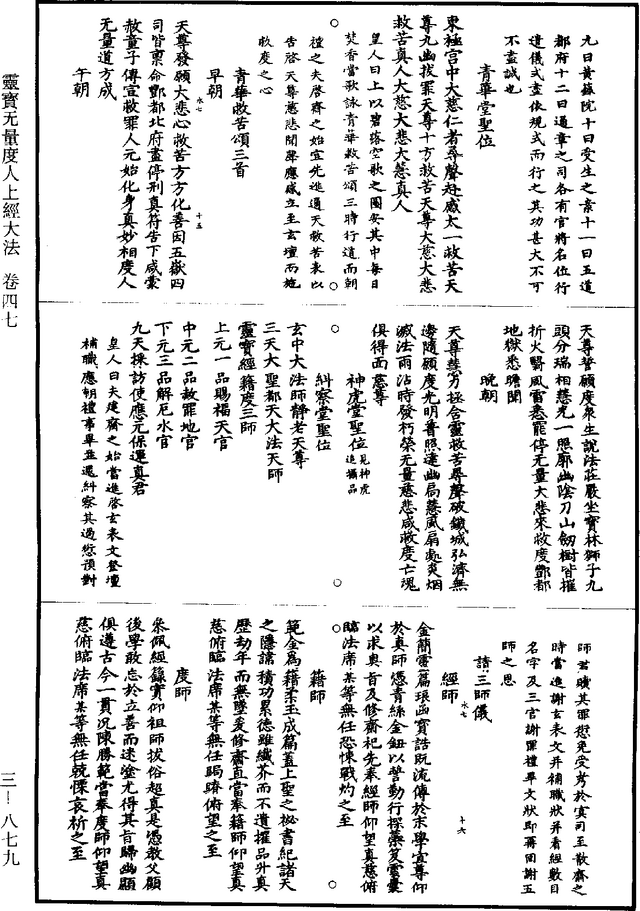 九日黃籙院十日受生之案十一日五道
都府十二日通章之司各有官將名位行
遣儀式盡依規式而行之其功甚大不可
不盡誠也
青華堂聖位
東極宮中大慈仁者尋聲赴感太一救苦天
尊九幽拔罪天尊十方救苦天尊大慈大悲
救苦真人大慈大悲大慧真人
皇人曰上以碧落空歌之圖安其中每日
焚香當歌詠青華救苦頌三時行道而朝
禮之夫啓齋之始宜先進通天救苦表以
告啓天尊慈悲聞聲應感立至玄壇而施
救度之心
青華救苦頌三首
早朝
天尊發願大悲心救苦方方化善因五嶽四
水七 十五
司皆稟命酆都北府盡停刑真符告下咸蒙
赦童子傳宣救罪人元始化身真妙相度人
無量道方成
午朝
天尊誓願度衆生說法莊嚴坐寶林獅子九
頭分瑞相慈光一照廓幽陰刀山劒樹皆摧
折火翳風雷悉罷停无量大悲來救度酆都
地獄悉瞻聞
晚朝
天尊慈力拯含靈救苦尋聲破鐵城弘濟無
邊隨願度光明普照達幽扃慧風扇處炎烟
滅法雨沾時發朽榮无量慈悲咸救度亡魂
俱得面慈尊
神虎堂聖位見神虎追攝品
糾察堂聖位
玄中大法師靜老天尊
三天大聖都天大法天師
靈寶經籍度三師
上元一品賜福天官
中元二品赦罪地官
下元三品解厄水官
九天採訪使應元保運真君
皇人曰夫建齋之始當進啓玄表文登壇
補職應朝禮事畢並還糾察其過愆預對
師君贖其罪愆免受考於冥司至散齋之
時當進謝玄表文并補職狀并看經數目
名字及三官謝罪禮畢文狀即蒋回謝五
師之恩
請三師儀
經師
水七 十六
金簡雲篇琅函寶誥既流傳於末學宜尋仰
於真師憑青絲金鈕以誓勤行探藥笈雲囊
以求奧旨及修齋祀先奉經師仰望真慈俯
臨法席某等無任恐悚戰灼之至
籍師
範金為籍柔玉成篇蓋上聖之祕書紀諸天
之隱諱積功累德雖纖芥而不遺擢品升真
歷劫年而無墜爰修齋直當奉籍師仰望真
慈俯臨法席某等無任跼蹐俯望之至
度師
泉佩經籙實仰祖師拔俗超真是憑教父顧
後學敢忘於立善而迷塗尤得其旨歸幽顯
俱遵古今一貫況陳勝範當奉度師仰望真
慈俯臨法席某等無任兢慄哀祈之至
靈寶无量度人上經大法 卷四七
三—八七九